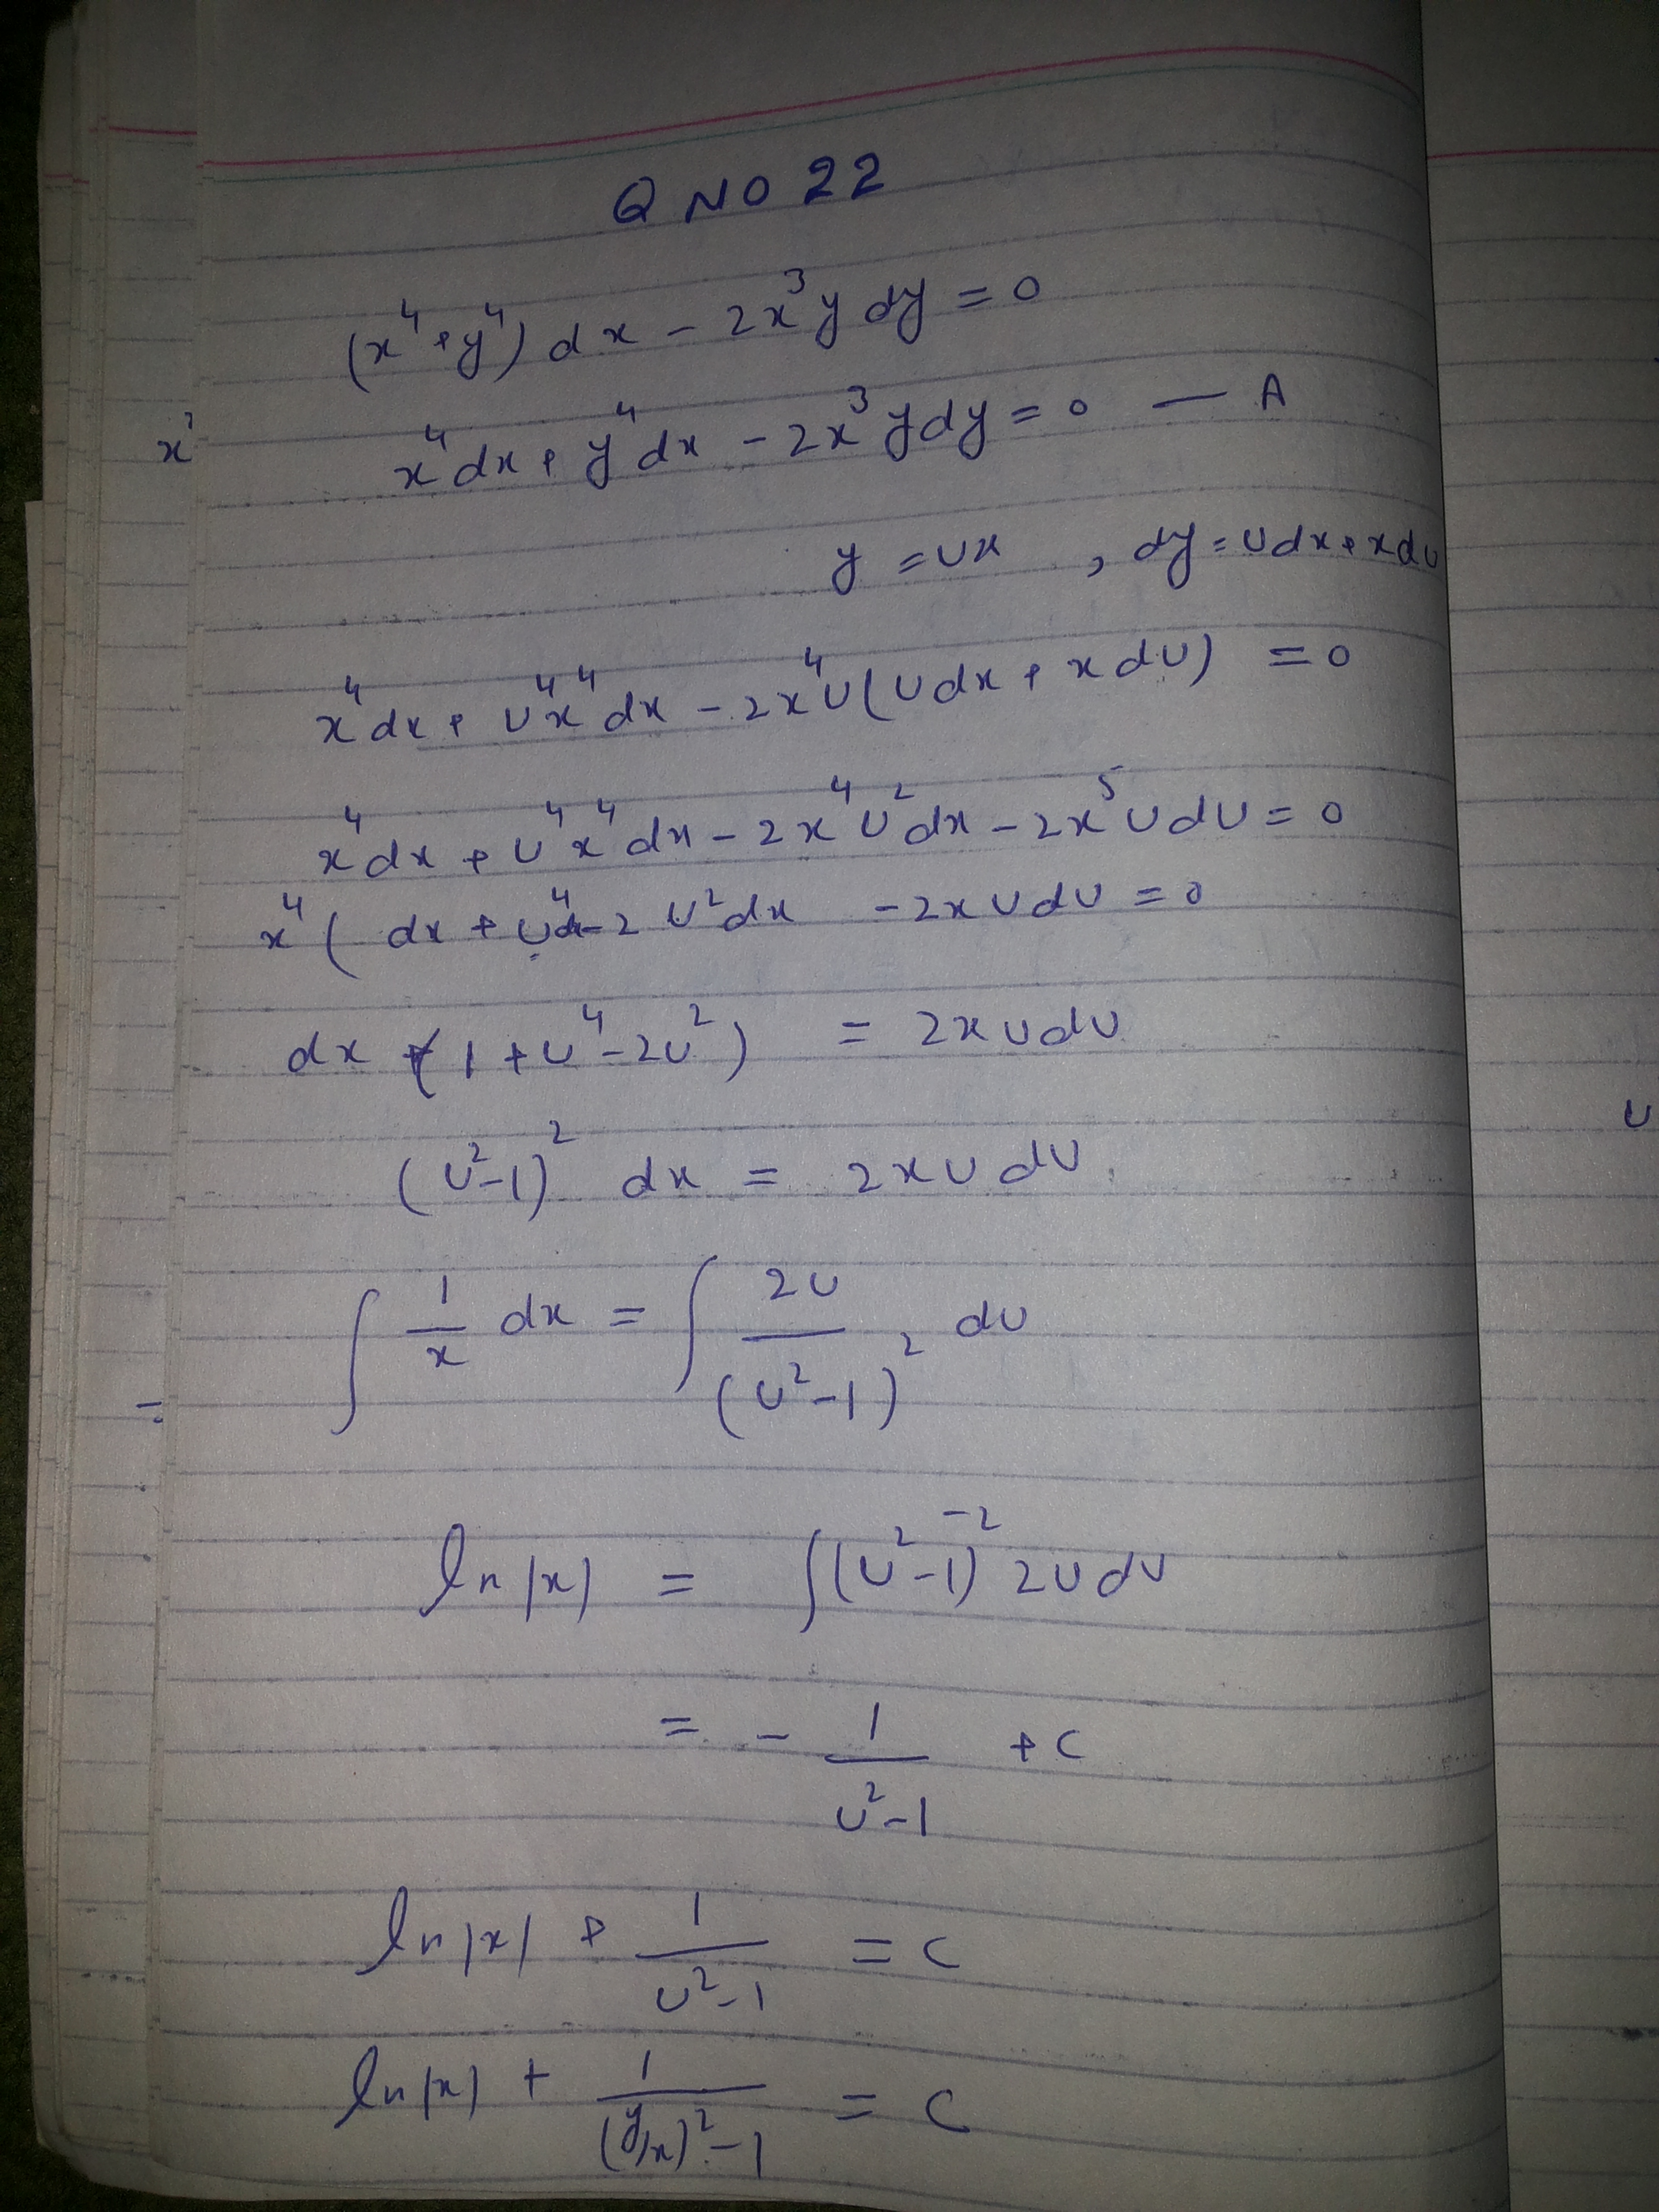 Q NO 22
(x⁴+y⁴) dx - 2x³y dy = 0
x⁴dx + y⁴dx - 2x³y dy = 0 — A
y = ux , dy = udx + xdu
x⁴dx + u⁴x⁴dx - 2x⁴u(udx + xdu) = 0
x⁴dx + u⁴x⁴dx - 2x⁴u²dx - 2x⁵udu = 0
x⁴( dx + u⁴dx - 2u²dx - 2xudu = 0
dx (1 + u⁴ - 2u²) = 2xudu
(u²-1)² dx = 2xudu
∫ 1/x dx = ∫ 2u/(u²-1)² du
ln|x| = ∫(u²-1)⁻² 2udu
= - 1/(u²-1) + c
ln|x| + 1/(u²-1) = c
ln|x| + 1/((y/x)²-1) = c